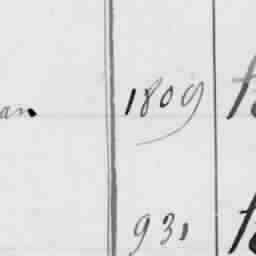 an 1809
931